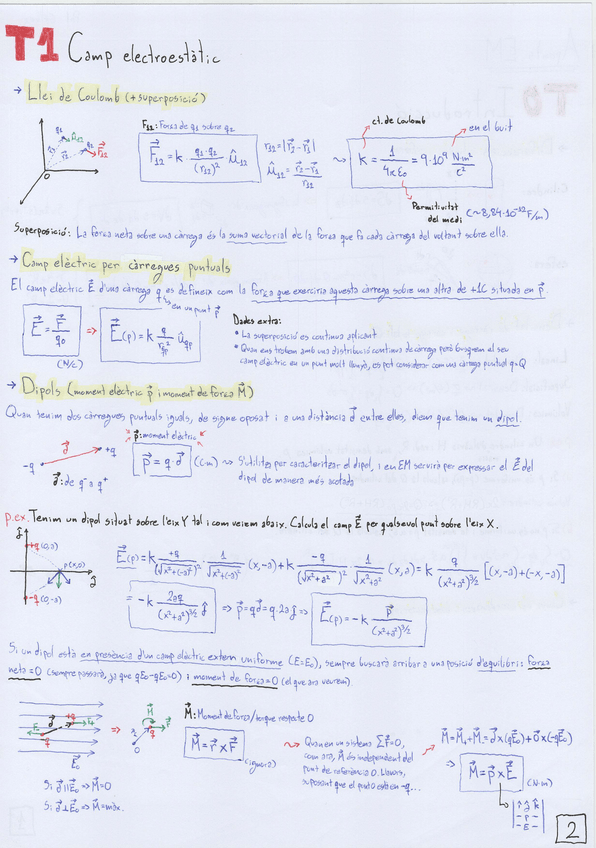 T1 Camp electroestàtic
→ Llei de Coulomb (+superposició)
F₁₂: Força de q₁ sobre q₂
F⃗₁₂ = k · q₁·q₂/(r₁₂)² · û₁₂
r₁₂ = |r⃗₂ - r⃗₁|
û₁₂ = (r⃗₂ - r⃗₁)/r₁₂
ct. de Coulomb
en el buit
K = 1/(4πε₀) = 9·10⁹ N·m²/C²
Permitivitat del medi (~8,84·10⁻¹² F/m)
Superposició: La força neta sobre una càrrega és la suma vectorial de la força que fa cada càrrega del voltant sobre ella.
→ Camp elèctric per càrregues puntuals
El camp elèctric E⃗ d'una càrrega q es defineix com la força que exerciria aquesta càrrega sobre una altra de +1C situada en p⃗.
en un punt p⃗
E⃗ = F⃗/q₀ ⇒ E⃗(p) = k q/r²qp ûqp
(N/C)
Dades extra:
* La superposició es continua aplicant
* Quan ens trobem amb una distribució contínua de càrrega però busquem el seu
camp elèctric en un punt molt llunyà, es pot considerar com una càrrega puntual q=Q
→ Dipols (moment elèctric p⃗ i moment de força M⃗)
Quan tenim dos càrregues puntuals iguals, de signe oposat i a una distància d⃗ entre elles, diem que tenim un dipol.
-q d⃗ +q
d⃗: de q⁻ a q⁺
p⃗: moment elèctric
p⃗ = q·d⃗ (C·m) ⇝ S'utilitza per caracteritzar el dipol, i en EM servirà per expressar el E⃗ del
dipol de manera més acotada
p.ex. Tenim un dipol situat sobre l'eix Y tal i com veiem abaix. Calcula el camp E⃗ per qualsevol punt sobre l'eix X.
+q (0,a)
P(x,0)
-q (0,-a)
E⃗(p) = k +q/(√x²+(-a)²)² 1/√x²+(-a)² (x,-a) + k -q/(√x²+a²)² · 1/√x²+a² (x,a) = k q/(x²+a²)^3/2 [(x,-a)+(-x,-a)]
= -k 2aq/(x²+a²)^3/2 ĵ ⇒ p⃗ = qd⃗ = q·2aĵ ⇒ E⃗(p) = -k p⃗/(x²+a²)^3/2
Si un dipol està en presència d'un camp elèctric extern uniforme (E=E₀), sempre buscarà arribar a una posició d'equilibri: força
neta=0 (sempre passarà, ja que qE₀-qE₀=0) i moment de força=0 (el que ara veurem)
M⃗: Moment de força/torque respecte O
M⃗ = r⃗ x F⃗
Quan en un sistema ΣF⃗=0,
com ara, M⃗ és independent del
punt de referència O. Llavors,
suposant que el punt O està en -q...
M⃗ = M⃗₊ + M⃗₋ = d⃗ x (qE⃗₀) + 0⃗ x (-qE⃗₀)
⇒ M⃗ = p⃗ x E⃗ (N·m)
| î ĵ k̂ |
| - p - |
| - E - |
E⃗₀
Si d⃗ ∥ E⃗₀ ⇒ M⃗=0
Si d⃗ ⊥ E⃗₀ ⇒ M⃗=màx.
2